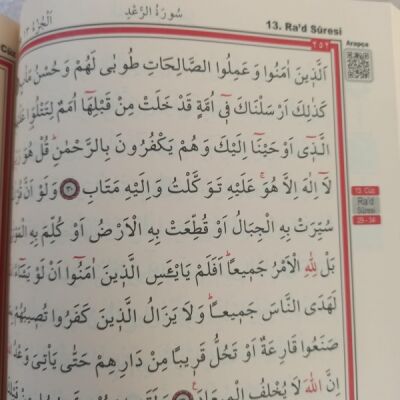 سُورَةُ الرَّعْدِ
13. Ra'd Sûresi
٢٥٢
Arapça
اَلَّذ۪ينَ اٰمَنُوا وَعَمِلُوا الصَّالِحَاتِ طُوبٰى لَهُمْ وَحُسْنُ
كَذٰلِكَ اَرْسَلْنَاكَ ف۪ٓي اُمَّةٍ قَدْ خَلَتْ مِنْ قَبْلِهَٓا اُمَمٌ لِتَتْلُوَ۬ا
الَّذ۪ٓي اَوْحَيْنَٓا اِلَيْكَ وَهُمْ يَكْفُرُونَ بِالرَّحْمٰنِۜ قُلْ هُوَ
لَٓا اِلٰهَ اِلَّا هُوَۚ عَلَيْهِ تَوَكَّلْتُ وَاِلَيْهِ مَتَابِ ﴿٣٠﴾ وَلَوْ اَنَّ
سُيِّرَتْ بِهِ الْجِبَالُ اَوْ قُطِّعَتْ بِهِ الْاَرْضُ اَوْ كُلِّمَ بِهِ
بَلْ لِلّٰهِ الْاَمْرُ جَم۪يعًاۜ اَفَلَمْ يَايْـَٔسِ الَّذ۪ينَ اٰمَنُٓوا اَنْ لَوْ يَشَٓاءُ
لَهَدَى النَّاسَ جَم۪يعًاۜ وَلَا يَزَالُ الَّذ۪ينَ كَفَرُوا تُص۪يبُهُمْ
صَنَعُوا قَارِعَةٌ اَوْ تَحُلُّ قَر۪يبًا مِنْ دَارِهِمْ حَتّٰى يَأْتِيَ وَعْدُ
اِنَّ اللّٰهَ لَا يُخْلِفُ الْم۪يعَادَ
13. Cüz
Ra'd
Sûresi
29 - 34